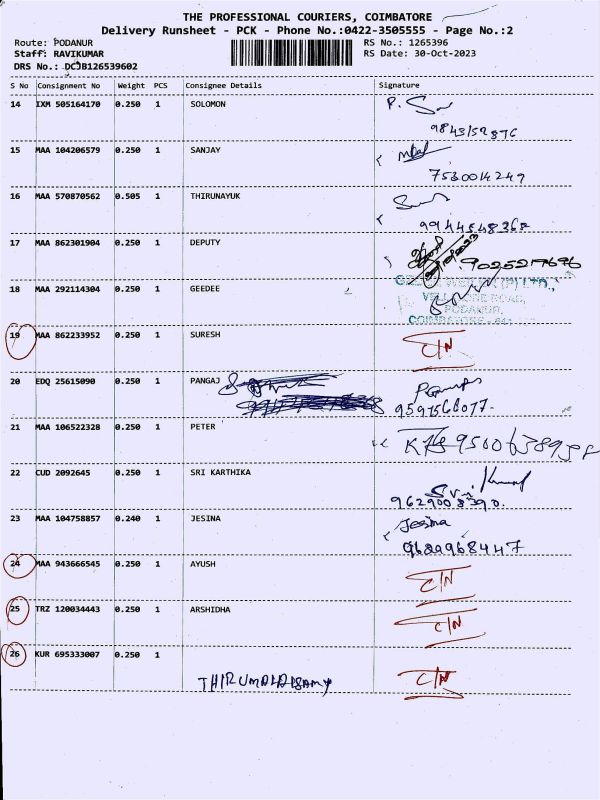 THE PROFESSIONAL COURIERS, COIMBATORE
Delivery Runsheet - PCK - Phone No.:0422-3505555 - Page No.:2
Route: PODANUR RS No.: 1265396
Staff: RAVIKUMAR RS Date: 30-Oct-2023
DRS No.: DCJB126539602
S No Consignment No Weight PCS Consignee Details Signature
14 IXM 505164170 0.250 1 SOLOMON
15 MAA 104206579 0.250 1 SANJAY
7530014249
16 MAA 570870562 0.505 1 THIRUNAYUK
17 MAA 862301904 0.250 1 DEPUTY
9025217676
18 MAA 292114304 0.250 1 GEEDEE
PODANUR,
19 MAA 862233952 0.250 1 SURESH C/N
20 EDQ 25615090 0.250 1 PANGAJ
21 MAA 106522328 0.250 1 PETER
22 CUD 2092645 0.250 1 SRI KARTHIKA
23 MAA 104758857 0.240 1 JESINA Jesina
9629968447
24 MAA 943666545 0.250 1 AYUSH C/N
25 TRZ 120034443 0.250 1 ARSHIDHA C/N
26 KUR 695333007 0.250 1 C/N
THIRUMALAISAMY